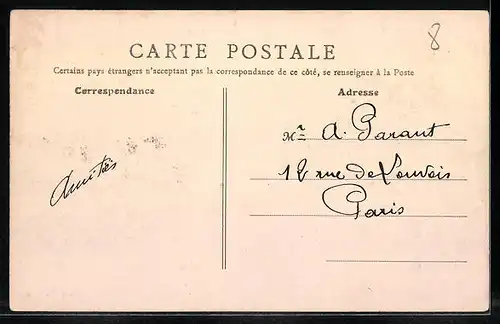 8
CARTE POSTALE
Certains pays étrangers n'acceptant pas la correspondance de ce côté, se renseigner à la Poste
Correspondance
Adresse
Mr A. Parant
12 rue de Louvois
Paris
Amitiés